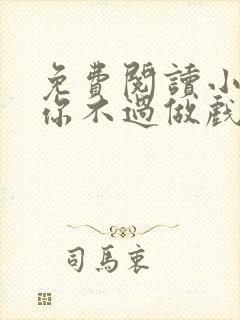 免費閱讀小
你不過做戲
司馬衷